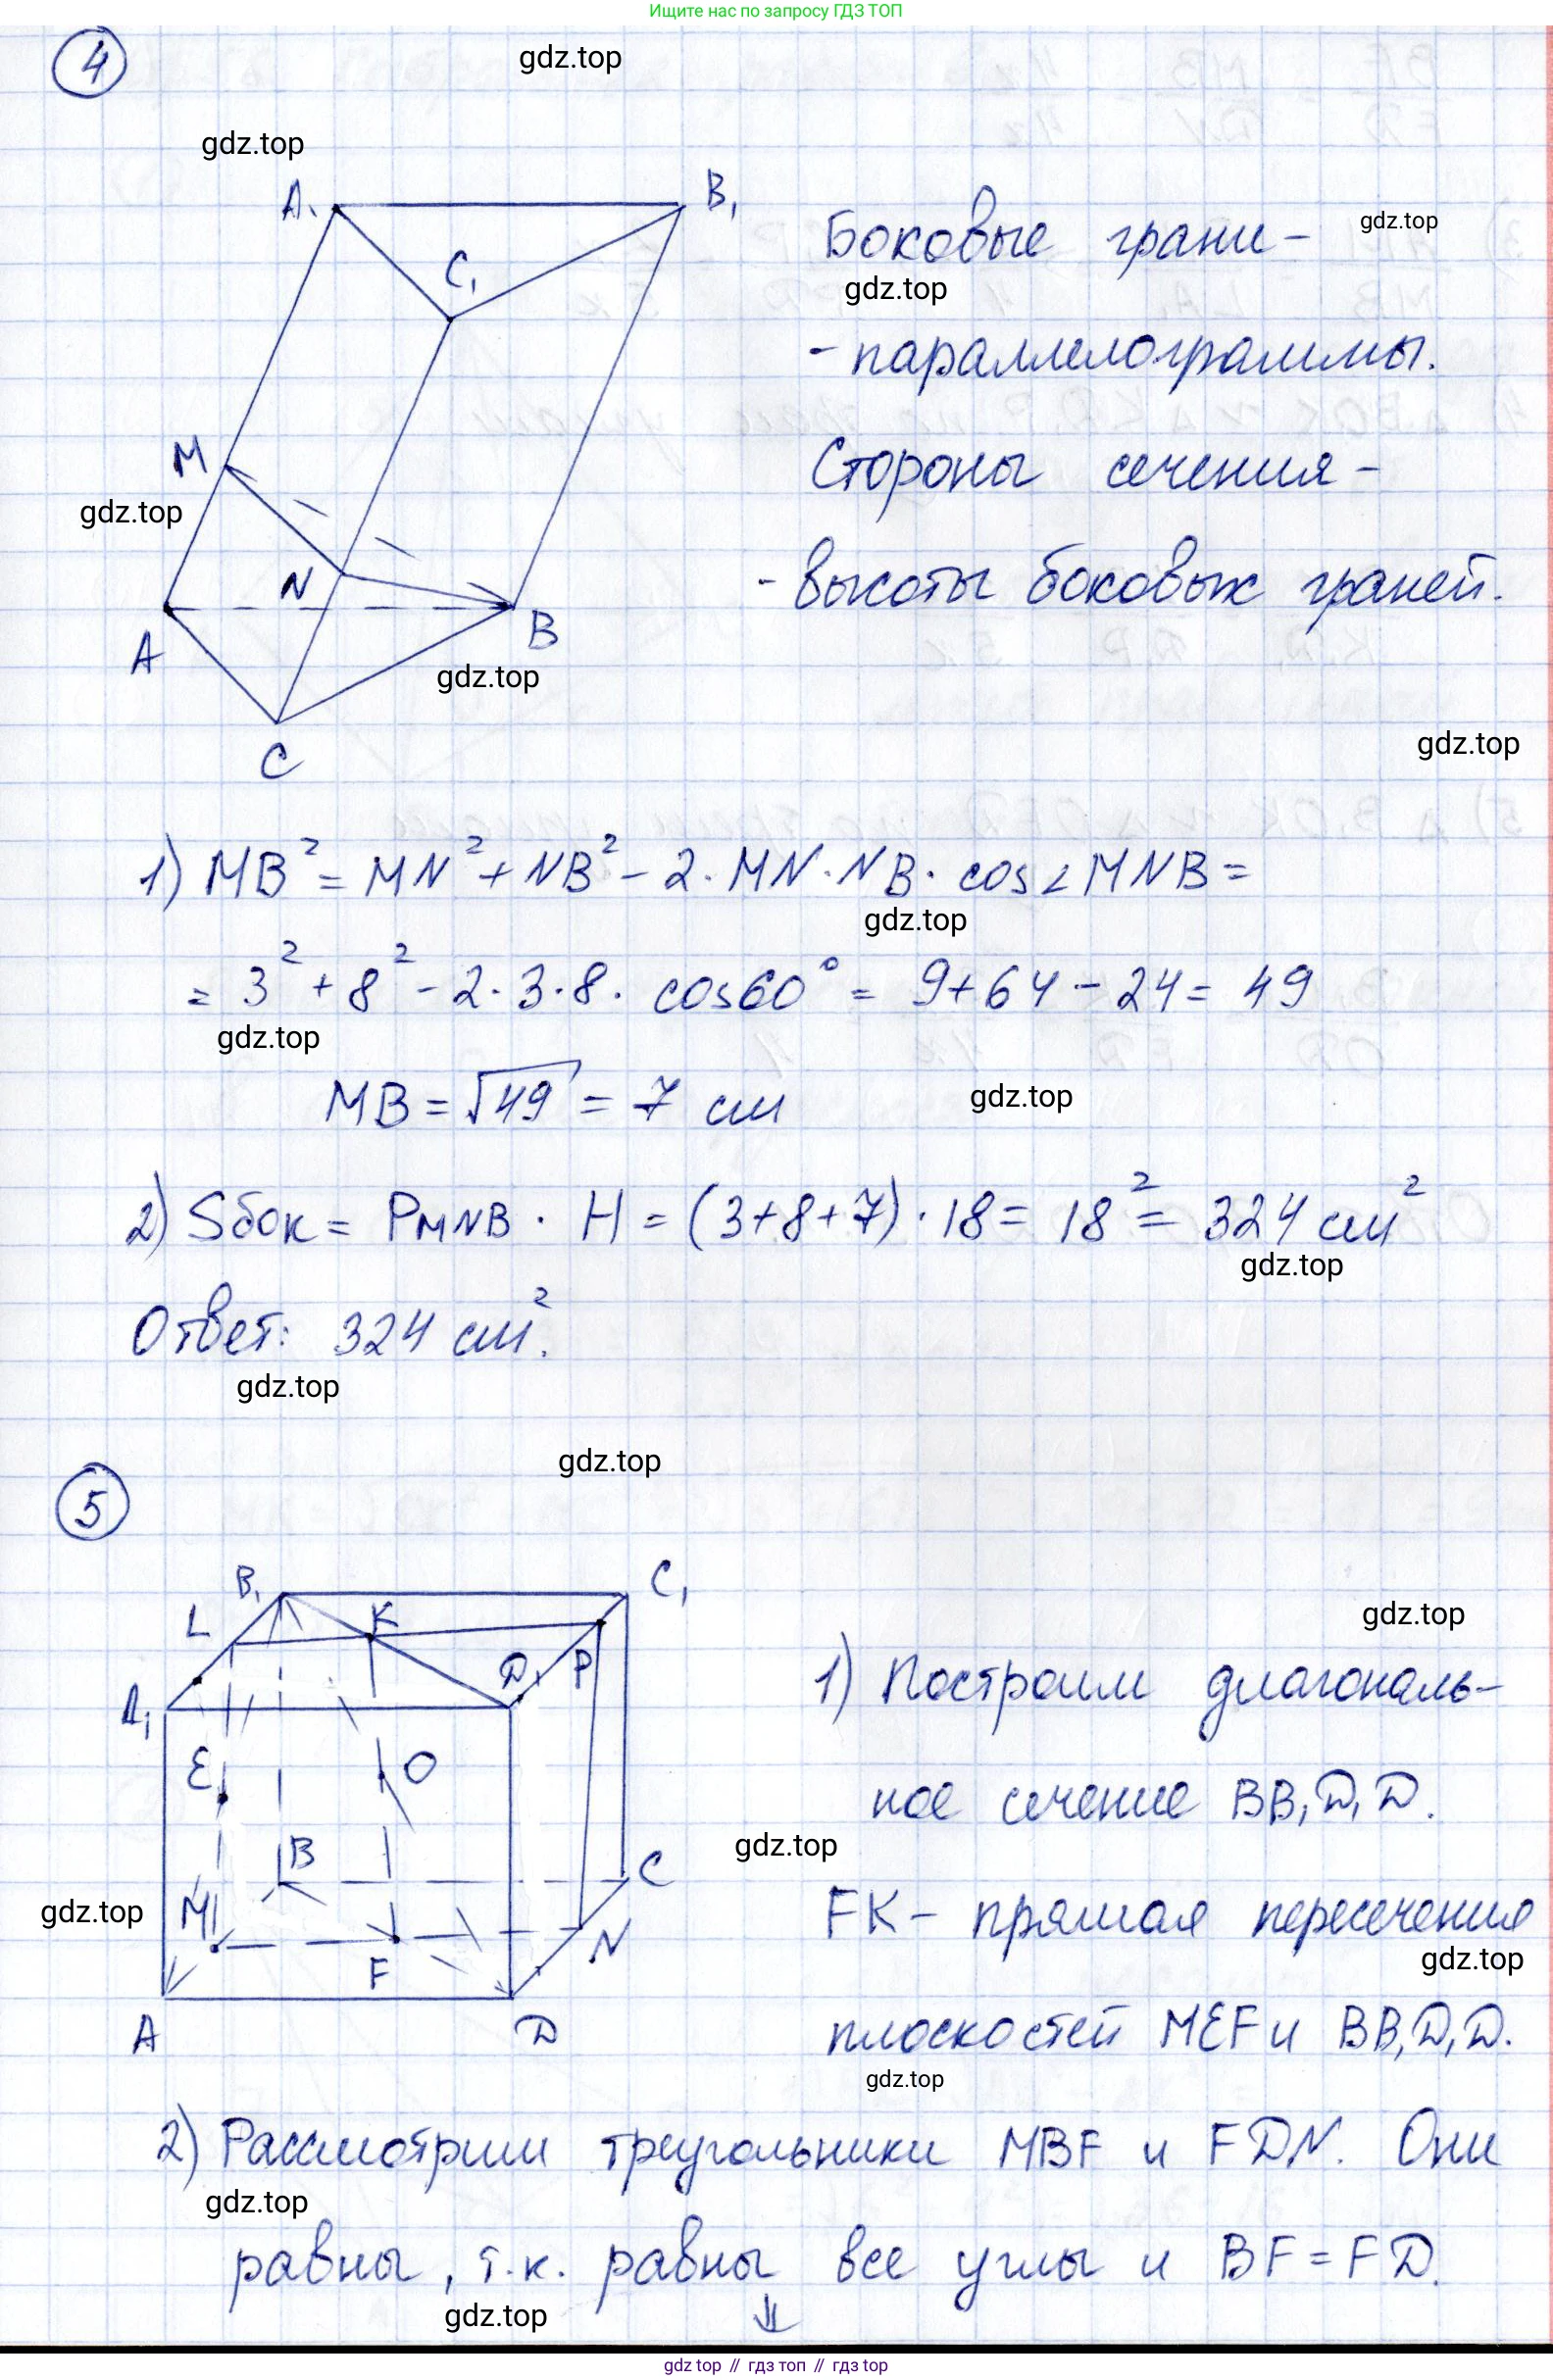 Ищите нас по запросу ГДЗ ТОП
4
gdz.top
gdz.top
A₁
B₁
C₁
M
N
A
B
C
gdz.top
gdz.top
Боковые грани -
gdz.top
gdz.top
- параллелограммы.
Стороны сечения -
- высоты боковых граней.
gdz.top
1) MB² = MN² + NB² - 2 · MN · NB · cos∠MNB =
gdz.top
= 3² + 8² - 2 · 3 · 8 · cos60° = 9 + 64 - 24 = 49
gdz.top
MB = √49 = 7 см
gdz.top
2) Sбок = PMNB · H = (3+8+7) · 18 = 18² = 324 см²
gdz.top
Ответ: 324 см².
gdz.top
gdz.top
5
B₁
C₁
L
K
D₁
P
A₁
E
O
B
C
M
F
N
A
D
gdz.top
gdz.top
1) Построим диагональ-
ное сечение BB₁D₁D.
gdz.top
FK - прямая пересечения
gdz.top
плоскостей MEF и BB₁D₁D.
gdz.top
2) Рассмотрим треугольники MBF и FDN. Они
gdz.top
равны, т.к. равны все углы и BF = FD.
gdz.top
⇓
gdz top // гдз топ // гдз top